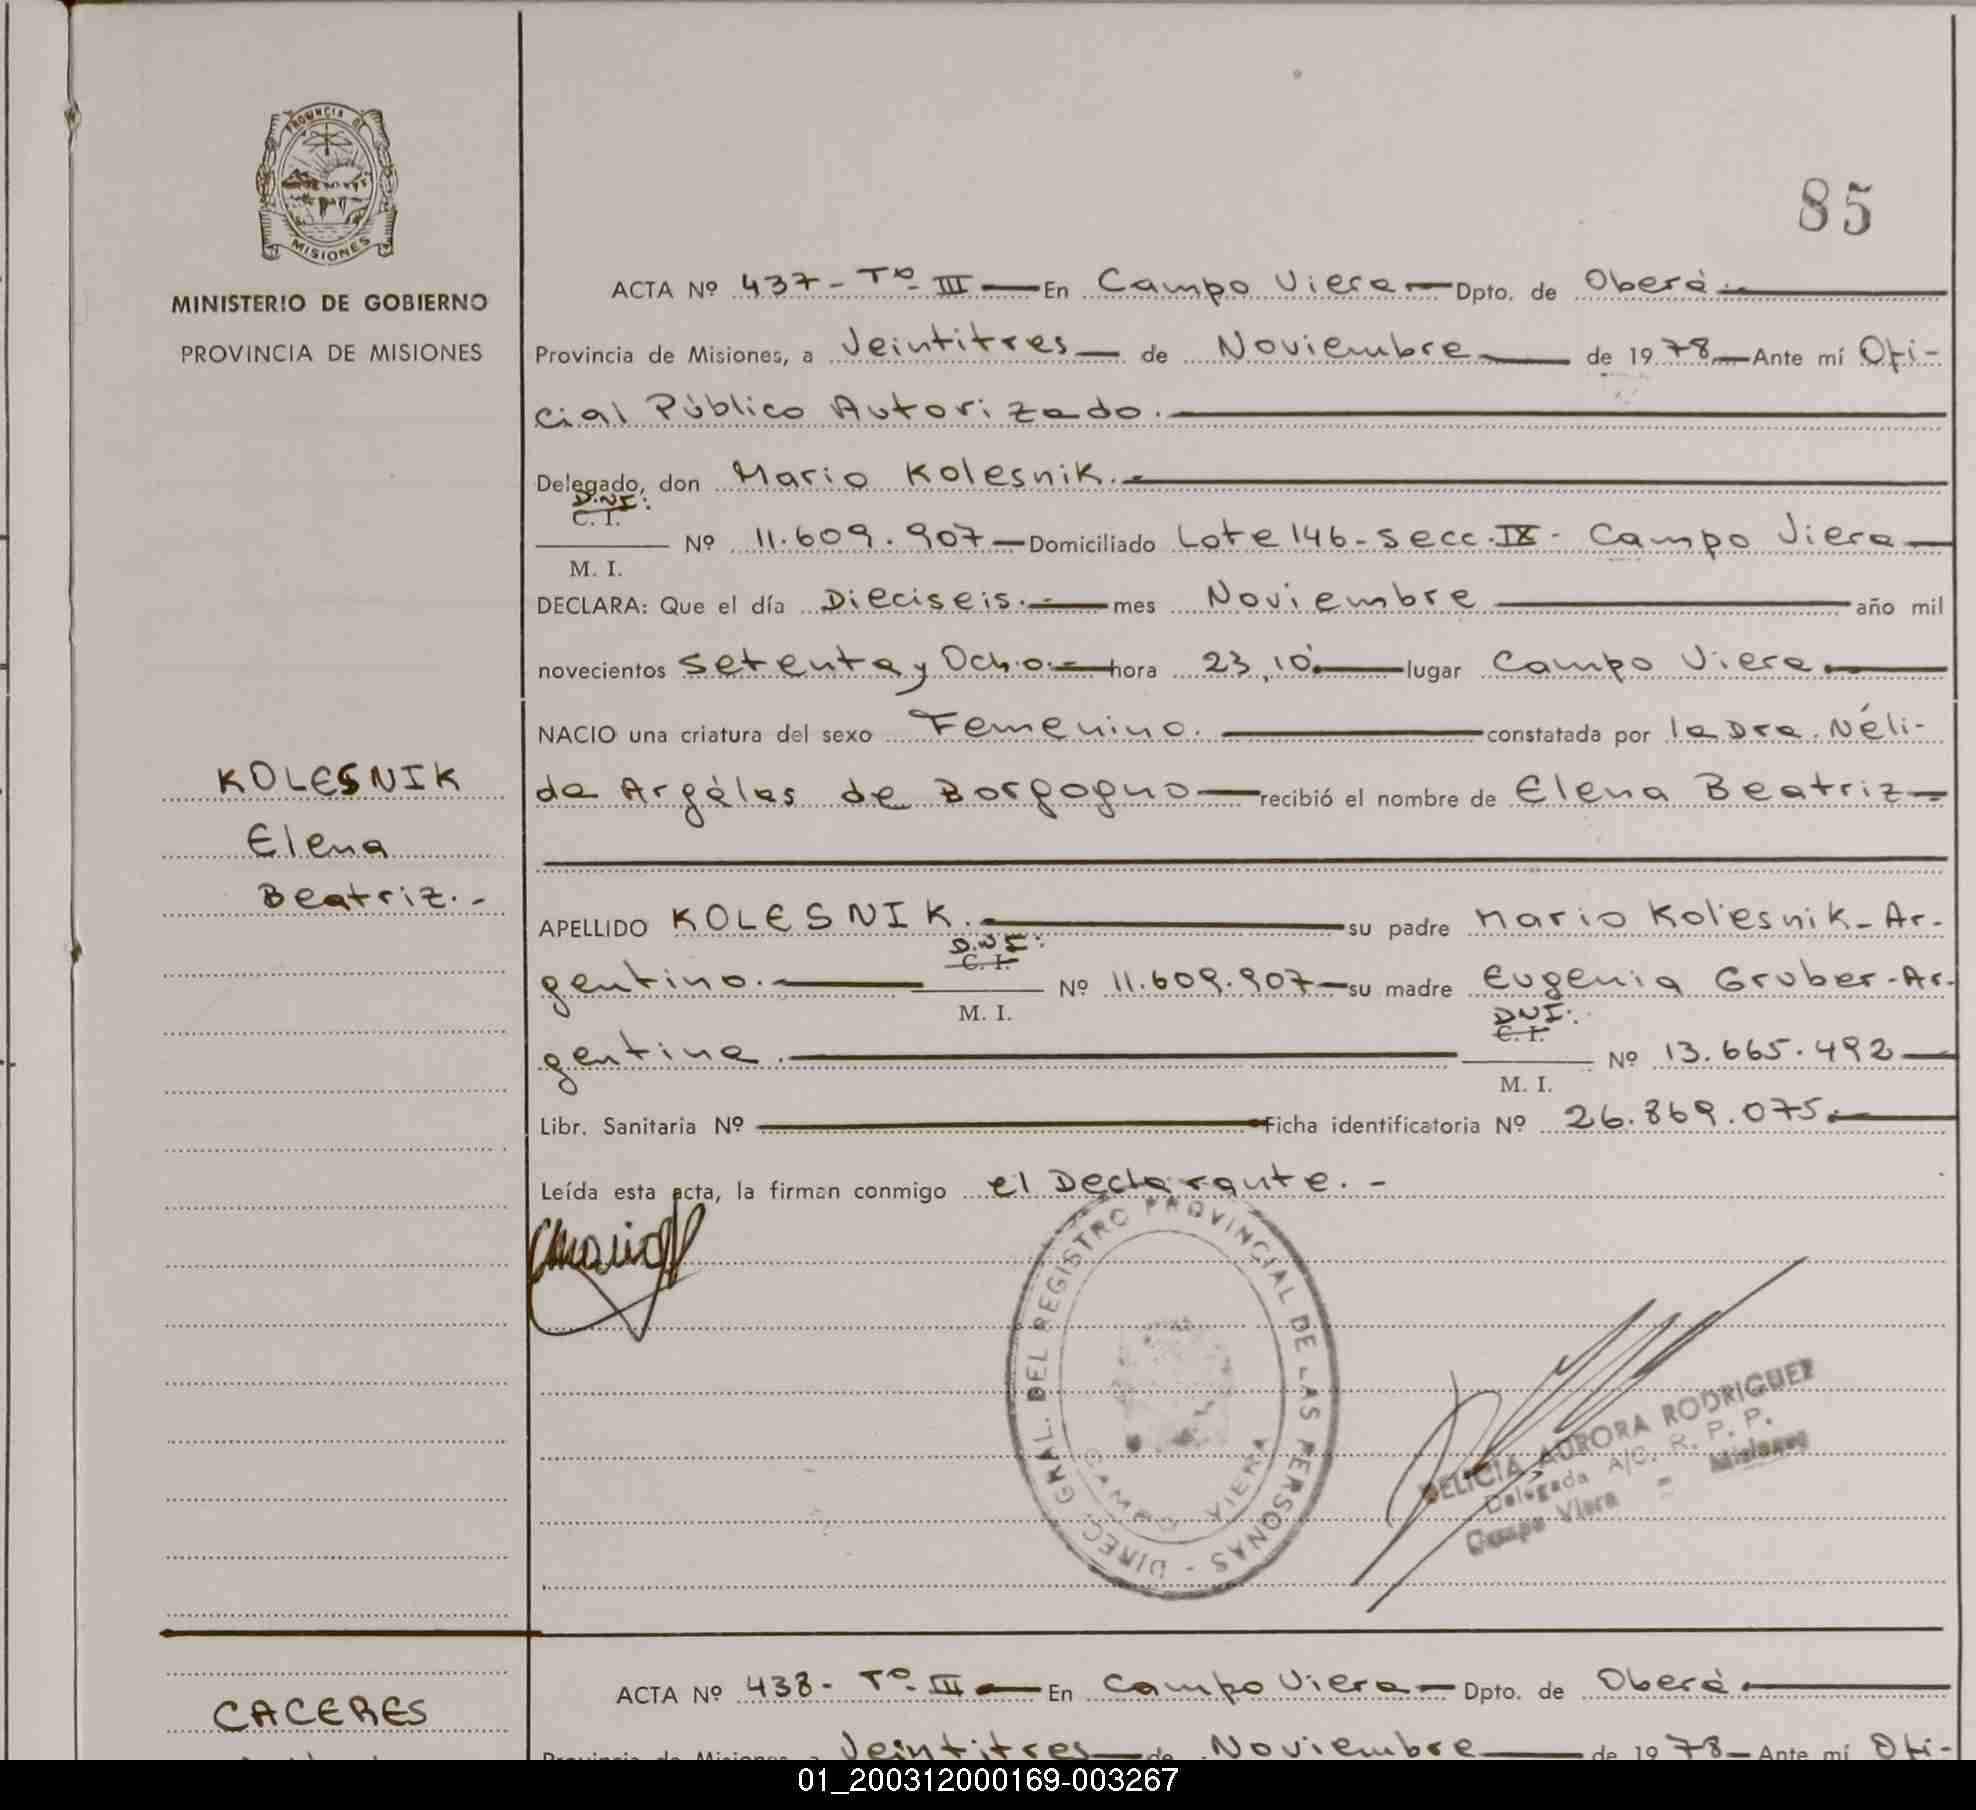 PROVINCIA DE
MISIONES
MINISTERIO DE GOBIERNO
PROVINCIA DE MISIONES
85
ACTA Nº 437 - Tº III — En Campo Viera — Dpto. de Oberá
Provincia de Misiones, a Veintitres — de Noviembre — de 1978 — Ante mí Ofi-
cial Público Autorizado.
Delegado, don Mario Kolesnik.
D.N.I:
C. I.
M. I.
Nº 11.609.907 — Domiciliado Lote 146 - secc. IX - Campo Viera
DECLARA: Que el día Dieciseis. — mes Noviembre — año mil
novecientos setenta y Ocho. — hora 23,10 — lugar Campo Viera
NACIO una criatura del sexo Femenino. — constatada por la Dra. Néli-
da Argélas de Borgogno — recibió el nombre de Elena Beatriz —
KOLESNIK
Elena
Beatriz.-
APELLIDO KOLESNIK. — su padre Mario Kolesnik - Ar-
D.N.I:
C. I.
M. I.
gentino. — Nº 11.609.907 — su madre Eugenia Gruber - Ar-
DNI:
C. I.
M. I.
gentina. — Nº 13.665.492 —
Libr. Sanitaria Nº — Ficha identificatoria Nº 26.869.075
Leída esta acta, la firman conmigo el Declarante. -
DIREC. GRAL. DEL REGISTRO PROVINCIAL DE LAS PERSONAS -
CAMPO VIERA
DELICIA AURORA RODRIGUEZ
Delegada A/C. R. P. P.
Campo Viera - Misiones
ACTA Nº 438 - Tº III — En Campo Viera — Dpto. de Oberá
CACERES
Provincia de Misiones, a Veintitres — de Noviembre — de 1978 — Ante mí Ofi-
01_200312000169-003267